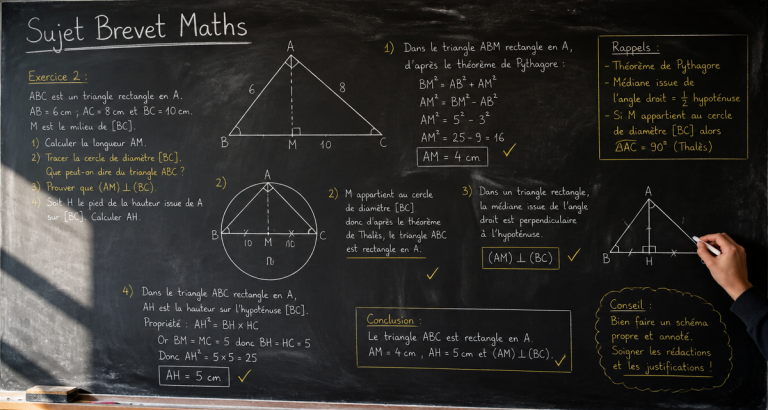 Sujet Brevet Maths
Exercice 2 :
ABC est un triangle rectangle en A.
AB = 6 cm ; AC = 8 cm et BC = 10 cm.
M est le milieu de [BC].
1) Calculer la longueur AM.
2) Tracer la cercle de diamètre [BC].
Que peut-on dire du triangle ABC ?
3) Prouver que (AM) ⊥ (BC).
4) Soit H le pied de la hauteur issue de A
sur [BC]. Calculer AH.
A
6
8
B
M
10
C
1) Dans le triangle ABM rectangle en A,
d'après le théorème de Pythagore :
BM² = AB² + AM²
AM² = BM² - AB²
AM² = 5² - 3²
AM² = 25 - 9 = 16
AM = 4 cm ✓
Rappels :
- Théorème de Pythagore
- Médiane issue de
l'angle droit = 1/2 hypoténuse
- Si M appartient au cercle
de diamètre [BC] alors
BAC = 90° (Thalès)
2)
A
B
C
10
M
10
2) M appartient au cercle
de diamètre [BC]
donc d'après le théorème
de Thalès, le triangle ABC
est rectangle en A.
✓
3) Dans un triangle rectangle,
la médiane issue de l'angle
droit est perpendiculaire
à l'hypoténuse.
(AM) ⊥ (BC) ✓
A
B
H
4) Dans le triangle ABC rectangle en A,
AH est la hauteur sur l'hypoténuse [BC].
Propriété : AH² = BH × HC
Or BM = MC = 5 donc BH = HC = 5
Donc AH² = 5 × 5 = 25
AH = 5 cm ✓
Conclusion :
Le triangle ABC est rectangle en A.
AM = 4 cm , AH = 5 cm et (AM) ⊥ (BC). ✓
Conseil :
Bien faire un schéma
propre et annoté.
Soigner les rédactions
et les justifications !